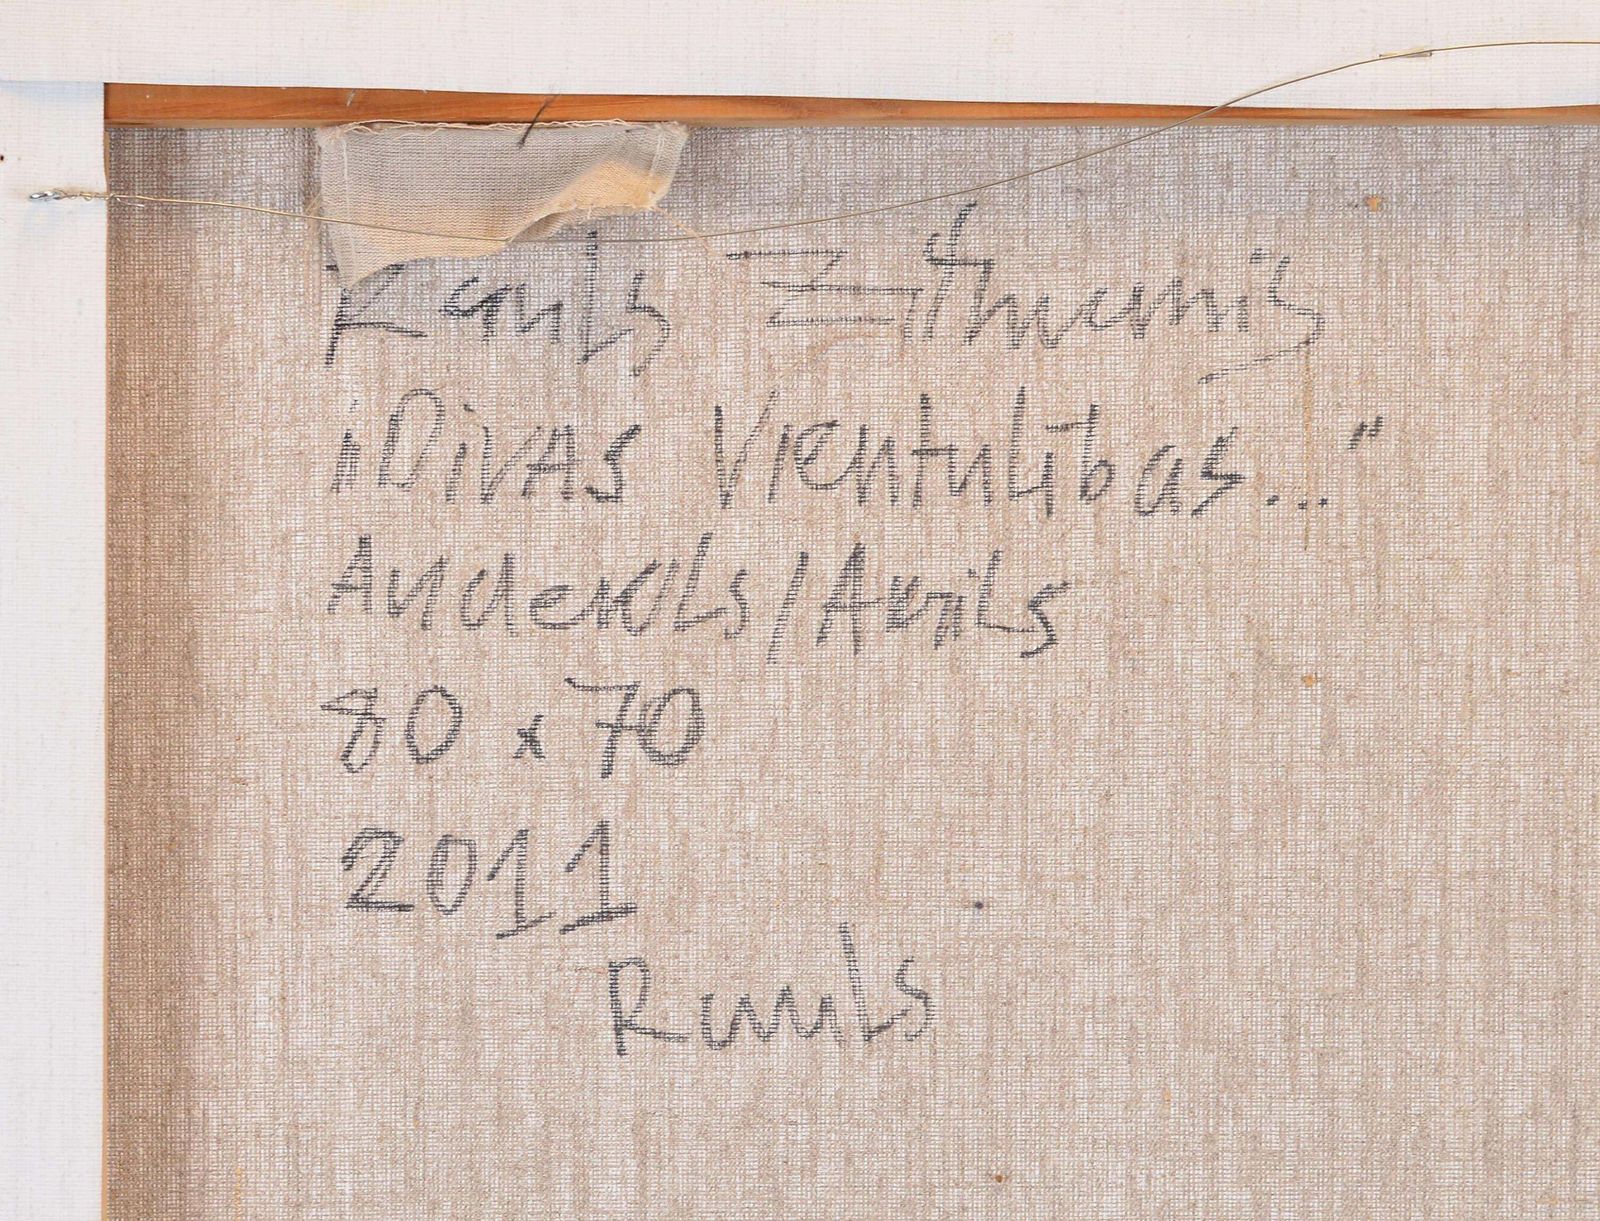 Rauls Zitmanis
"DiVAS Vientulības..."
Audekls/Akrils
80 x 70
2011
Rauls